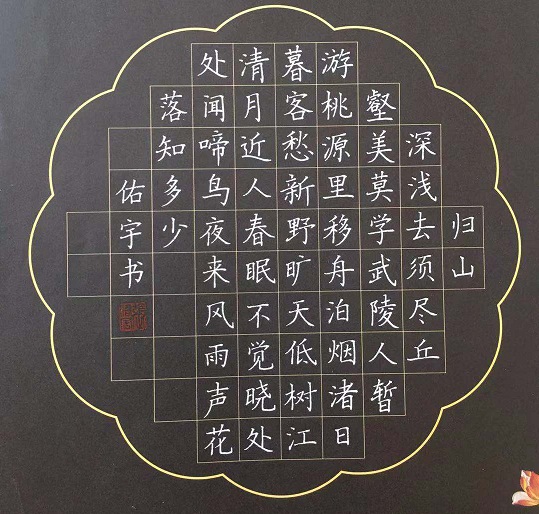 归山
深浅去须尽丘
壑美莫学武陵人暂
游桃源里移舟泊烟渚日
暮客愁新野旷天低树江
清月近人春眠不觉晓处
处闻啼鸟夜来风雨声花
落知多少
佑宇书